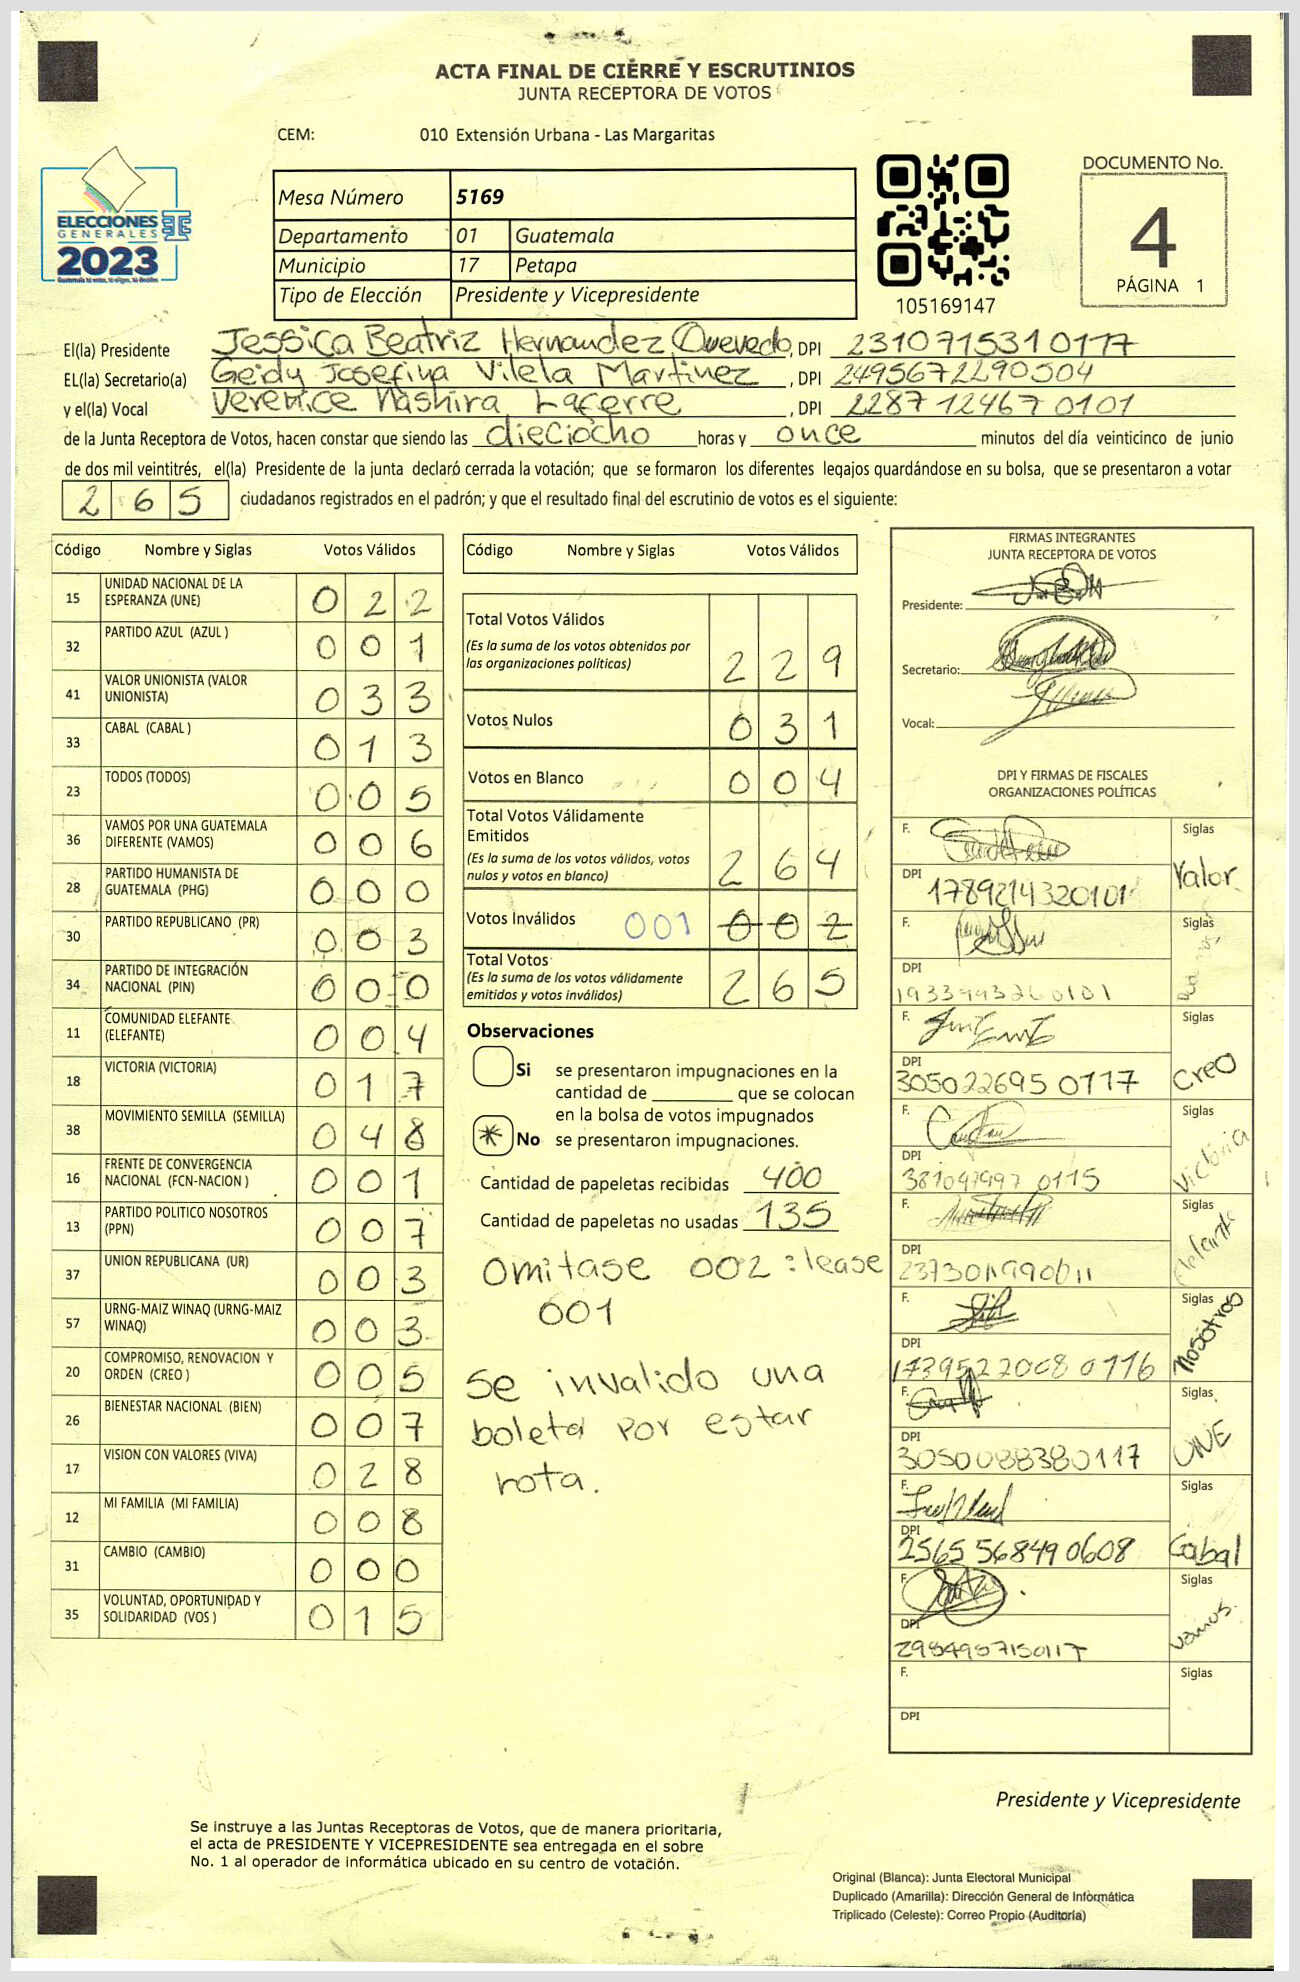 ACTA FINAL DE CIERRE Y ESCRUTINIOS
JUNTA RECEPTORA DE VOTOS
CEM: 010 Extensión Urbana - Las Margaritas
ELECCIONES
GENERALES
2023
Mesa Número 5169
Departamento 01 Guatemala
Municipio 17 Petapa
Tipo de Elección Presidente y Vicepresidente
105169147
DOCUMENTO No.
4
PÁGINA 1
El(la) Presidente Jessica Beatriz Hernandez Quevedo, DPI 2310715310117
EL(la) Secretario(a) Geidy Josefina Vilela Martinez, DPI 2495672290504
y el(la) Vocal Verenice Nashira Laferre, DPI 2287124670101
de la Junta Receptora de Votos, hacen constar que siendo las dieciocho horas y once minutos del día veinticinco de junio
de dos mil veintitrés, el(la) Presidente de la junta declaró cerrada la votación; que se formaron los diferentes legajos quardándose en su bolsa, que se presentaron a votar
265 ciudadanos registrados en el padrón; y que el resultado final del escrutinio de votos es el siguiente:
Código Nombre y Siglas Votos Válidos
15 UNIDAD NACIONAL DE LA ESPERANZA (UNE) 022
32 PARTIDO AZUL (AZUL ) 001
41 VALOR UNIONISTA (VALOR UNIONISTA) 033
33 CABAL (CABAL ) 013
23 TODOS (TODOS) 005
36 VAMOS POR UNA GUATEMALA DIFERENTE (VAMOS) 006
28 PARTIDO HUMANISTA DE GUATEMALA (PHG) 000
30 PARTIDO REPUBLICANO (PR) 003
34 PARTIDO DE INTEGRACIÓN NACIONAL (PIN) 000
11 COMUNIDAD ELEFANTE (ELEFANTE) 004
18 VICTORIA (VICTORIA) 017
38 MOVIMIENTO SEMILLA (SEMILLA) 048
16 FRENTE DE CONVERGENCIA NACIONAL (FCN-NACION ) 001
13 PARTIDO POLITICO NOSOTROS (PPN) 007
37 UNION REPUBLICANA (UR) 003
57 URNG-MAIZ WINAQ (URNG-MAIZ WINAQ) 003
20 COMPROMISO, RENOVACION Y ORDEN (CREO ) 005
26 BIENESTAR NACIONAL (BIEN) 007
17 VISION CON VALORES (VIVA) 028
12 MI FAMILIA (MI FAMILIA) 008
31 CAMBIO (CAMBIO) 000
35 VOLUNTAD, OPORTUNIDAD Y SOLIDARIDAD (VOS ) 015
Código Nombre y Siglas Votos Válidos
Total Votos Válidos 229
(Es la suma de los votos obtenidos por
las organizaciones politicas)
Votos Nulos 031
Votos en Blanco 004
Total Votos Válidamente
Emitidos 264
(Es la suma de los votos válidos, votos
nulos y votos en blanco)
Votos Inválidos 001 002
Total Votos 265
(Es la suma de los votos válidamente
emitidos y votos inválidos)
Observaciones
Si se presentaron impugnaciones en la
cantidad de ________ que se colocan
en la bolsa de votos impugnados
No se presentaron impugnaciones.
Cantidad de papeletas recibidas 400
Cantidad de papeletas no usadas 135
Omitase 002 : lease
001
Se invalido una
boleta por estar
rota.
FIRMAS INTEGRANTES
JUNTA RECEPTORA DE VOTOS
Presidente:
Secretario:
Vocal:
DPI Y FIRMAS DE FISCALES
ORGANIZACIONES POLÍTICAS
F. Siglas
DPI 1789214320101 Valor
F. Siglas
DPI
F. Siglas
DPI 3050226950117 Creo
F. Siglas
DPI Victoria
F. Siglas
DPI elefante
F. Siglas
DPI 1739522008 0116 Nosotros
F. Siglas
DPI 3050088380117 UNE
F. Siglas
DPI 2565568490608 Cabal
F. Siglas
DPI 2984987150117 vamos
F. Siglas
DPI
Presidente y Vicepresidente
Se instruye a las Juntas Receptoras de Votos, que de manera prioritaria,
el acta de PRESIDENTE Y VICEPRESIDENTE sea entregada en el sobre
No. 1 al operador de informática ubicado en su centro de votación.
Original (Blanca): Junta Electoral Municipal
Duplicado (Amarilla): Dirección General de Informática
Triplicado (Celeste): Correo Propio (Auditoría)